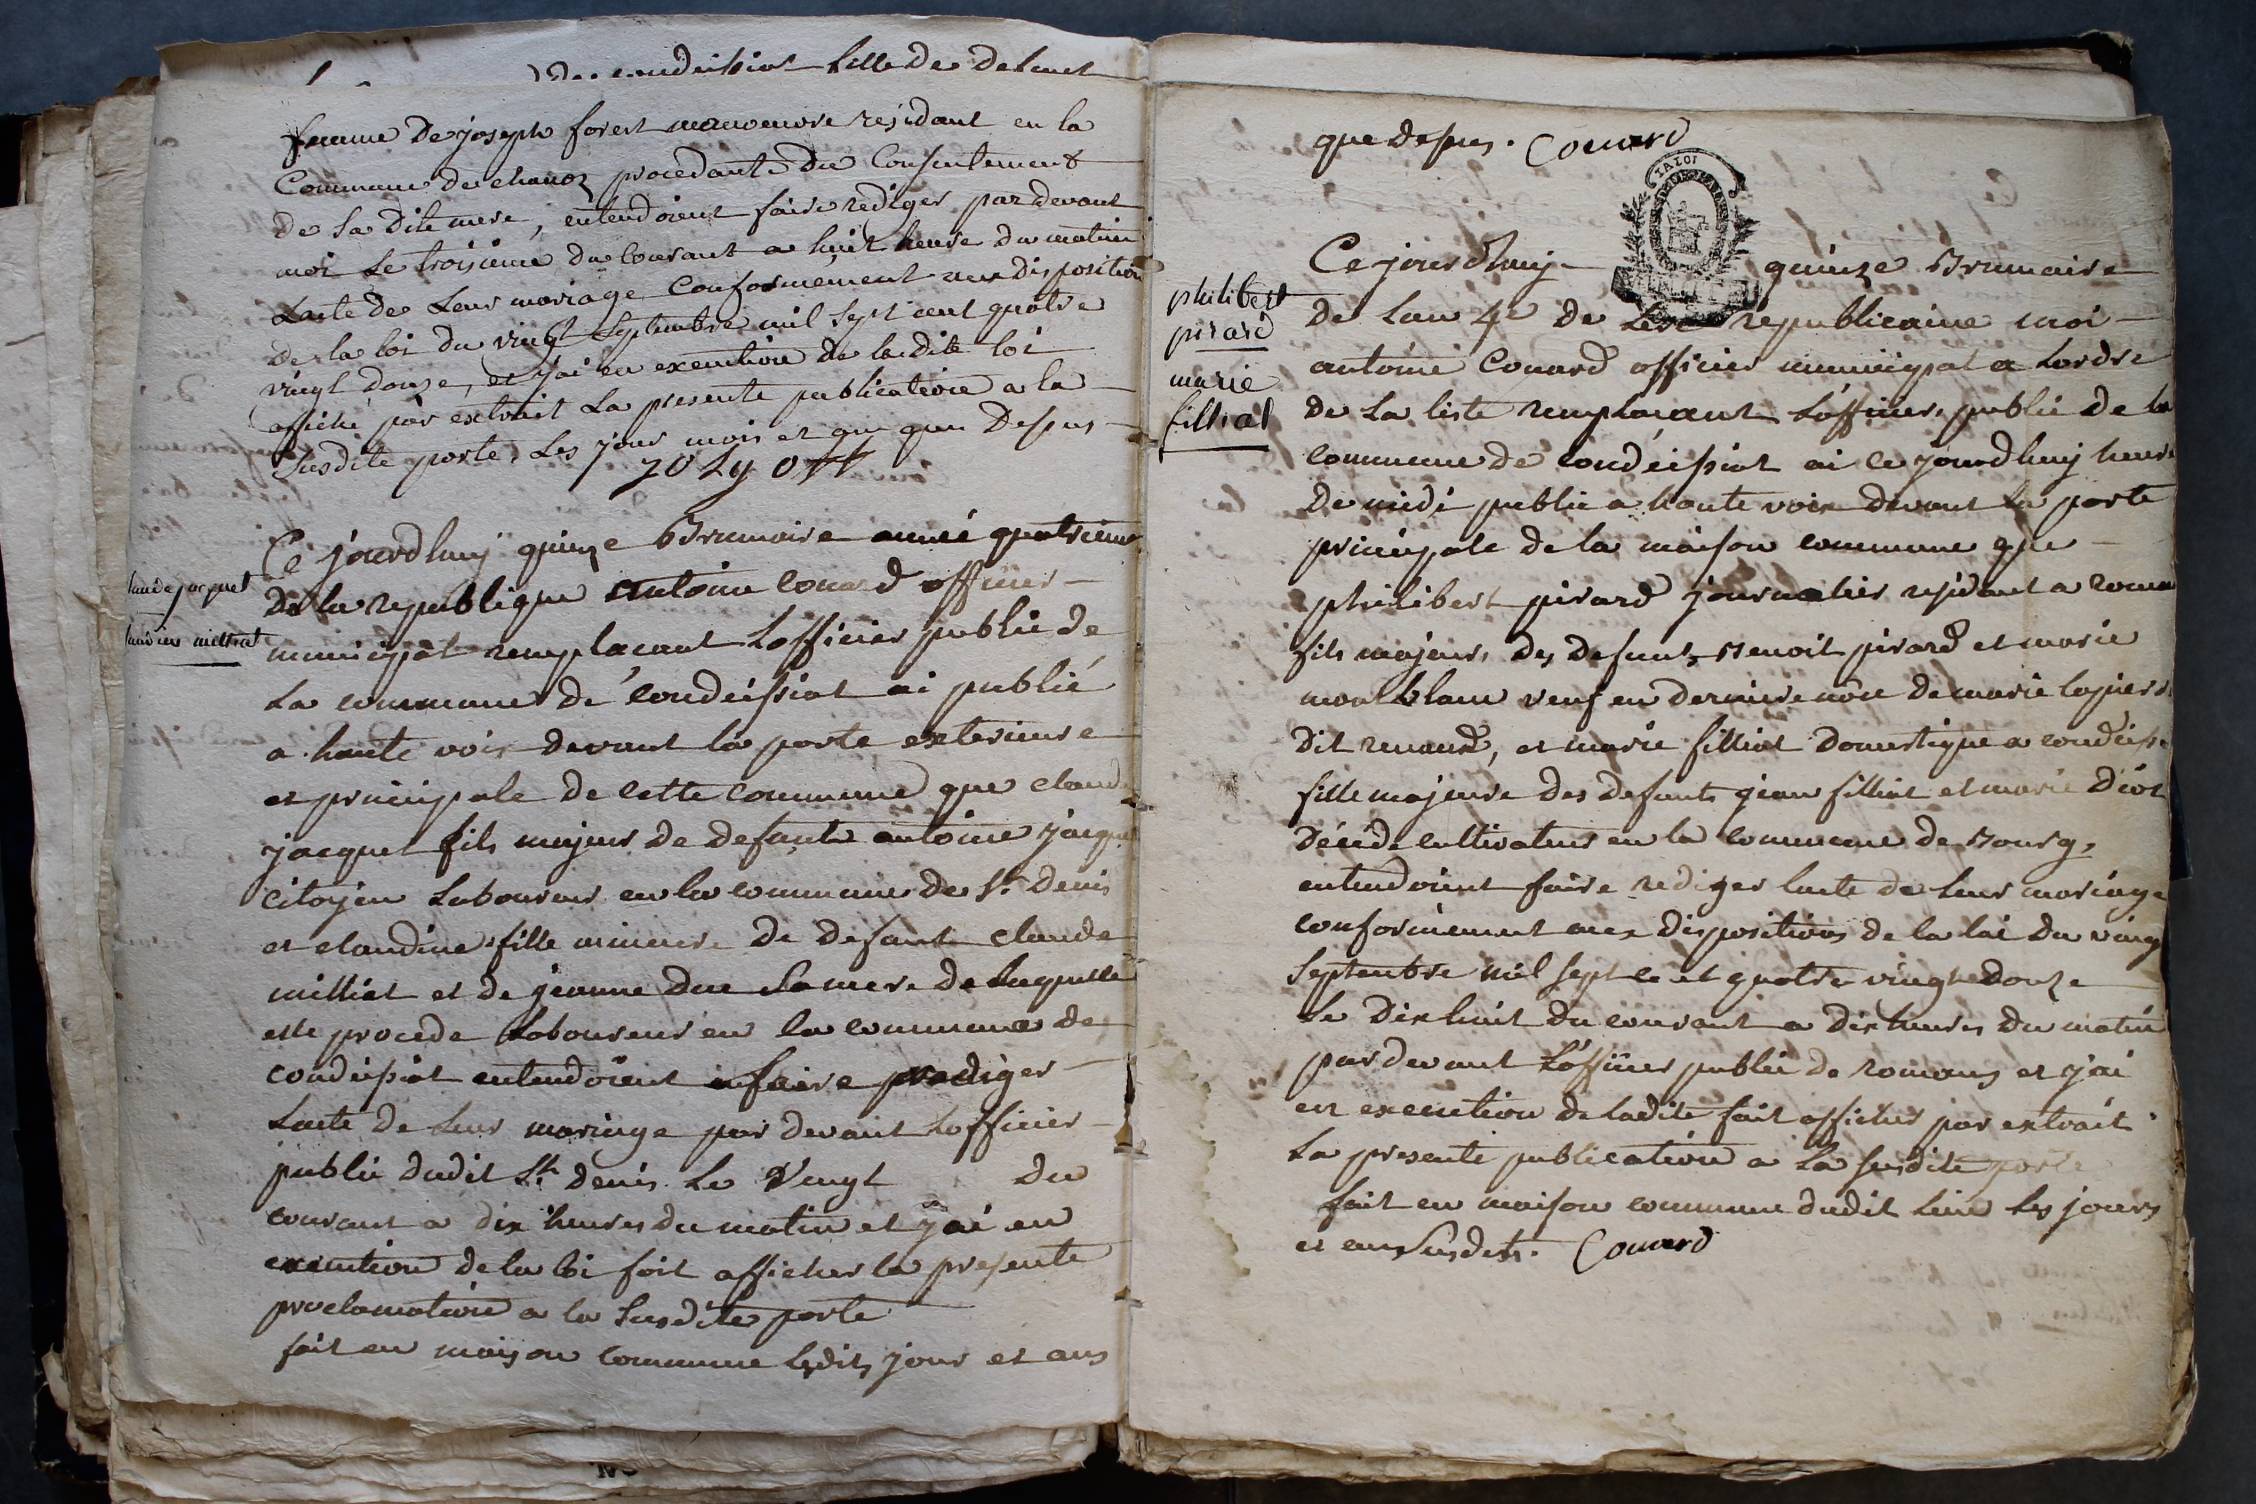 de condeissiat fille de defunt
femme de joseph forest manoeuvre residant en la
Commune de chanoz procedante du Consentement
de sa dite mere, entendoient faire rediger par devant
moi le troisieme du courant a huit heure du matin
Lacte de Leur mariage Conformement aux disposition
de la loi du vingt Septembre mil sept cent quatre
vingt douze, et j'ai en execution de la dite loi
affiché par extrait La presente publication a la
susdite porte, Les jour mois et an que Depus
JOLYOTT
Ce jourdhuy quinze Brumaire année quatrieme
De la republique antoine Couard officier
municipal remplacant Lofficier public de
La commune de condeissiat ai publié
a haute voix devant la porte exterieure
et principale de cette commune que claude
jacquet fils majeur de defunt antoine jacquet
citoyen Laboureur en la commune de St. Denis
et claudine fille mineure de defunt claude
milliat et de jeanne Duc Sa mere de laquelle
elle procede Laboureur en la commune de
condeissiat entendoient faire rediger
Lacte de leur mariage par devant Lofficier
public dudit St. denis Le Vingt du
courant a dix heures du matin et j'ai en
execution de la loi fait afficher la presente
proclamation a la Susdite porte
fait en maison commune lesdits jour et ans
laude jacquet
milliat
que depus. Couard
LA LOI
Ce jourdhuy quinze Brumaire
de Lan 4e de Lere republicaine moi
antoine Couard officier municipal a Lordre
de La liste remplacant Lofficier public de la
commune de condeissiat ai ce jourdhuy heure
de midi publié a haute voix devant La porte
principale de la maison commune que
philibert pirard journalier residant a roman
fils majeur des defunts Benoit pirard et marie
montblanc veuf en derniere nôce de marie lapierre
dit renaud, et marie filliat Domestique a condeiss
fille majeure des defunts jean filliat et marie
Décédé cultivateur en la commune de Bourg,
entendoient faire rediger lacte de leur mariage
conformement aux dispositions de la loi du vingt
Septembre mil sept ce et quatre vingt douze
Le Dix huit du courant a dix heures du matin
par devant L'officier public de romans et j'ai
en execution de ladite fait afficher par extrait
La presente publication a La susdite porte
fait en maison commune dudit lieu Les jours
et ans Susdits. Couard
philibert
pirard
marie
filliat